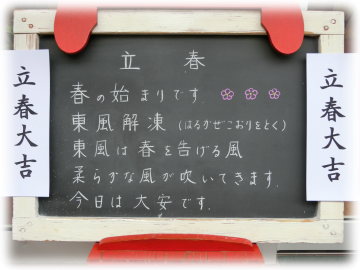 立春
春の始まりです
東風解凍(はるかぜこおりをとく)
東風は春を告げる風
柔らかな風が吹いてきます.
今日は大安です.
立春大吉
立春大吉